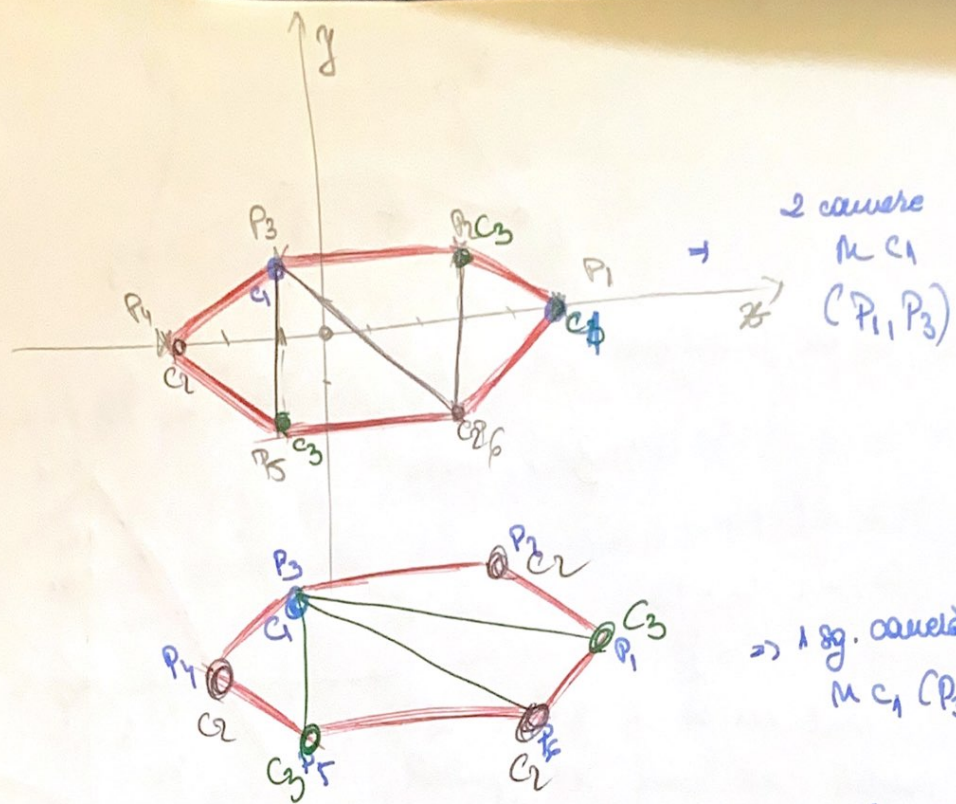 y
P3
P2 C3
P1
P4
C1
C1
x
C2
C3
P5
C2
P6
2 camere
în C1
(P1, P3)
P3
C1
P2
C2
C3
P1
P4
C2
C3 P5
P6
C2
=> 1 sg. cameră
în C1 (P3